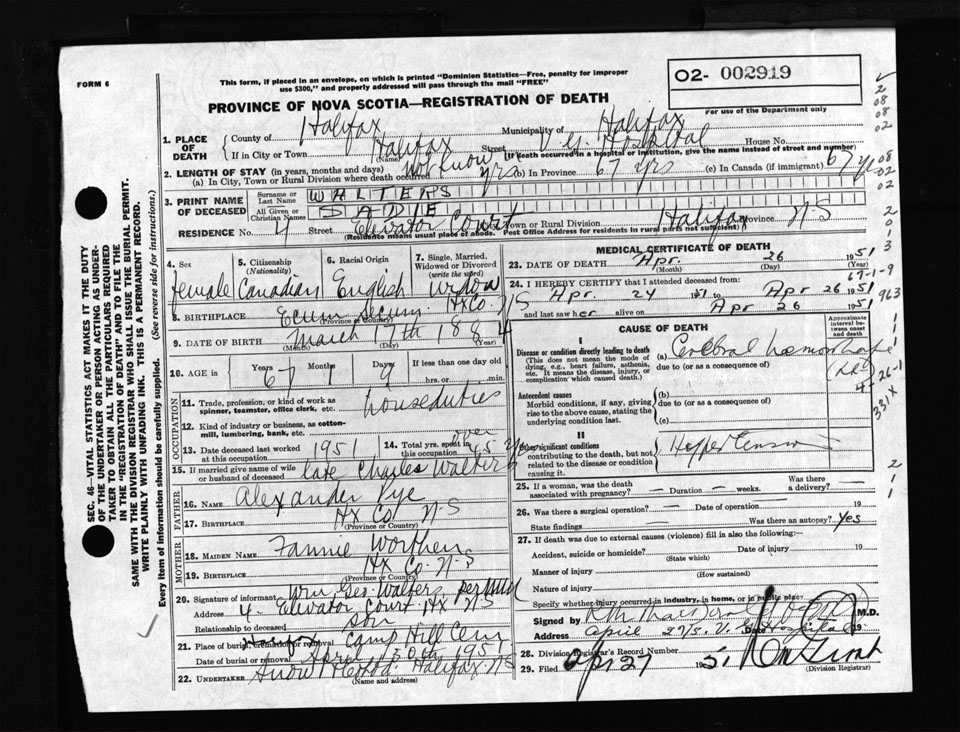 FORM 6
This form, if placed in an envelope, on which is printed "Dominion Statistics—Free, penalty for improper
use $300," and properly addressed will pass through the mail "FREE"
02- 002919
PROVINCE OF NOVA SCOTIA—REGISTRATION OF DEATH
For use of the Department only
1. PLACE OF DEATH County of Halifax Municipality of Halifax
If in City or Town Halifax Street V.G. Hospital House No.
(Name) (If death occurred in a hospital or institution, give the name instead of street and number)
2. LENGTH OF STAY (in years, months and days)
(a) In City, Town or Rural Division where death occurred yrs (b) In Province 67 yrs (c) In Canada (if immigrant) 67 yrs
3. PRINT NAME OF DECEASED Surname or Last Name WALTERS
All Given or Christian Names SADIE
RESIDENCE No. 4 Street Elevator Court City, Town or Rural Division Halifax Province N-S
(Residence means usual place of abode. Post Office Address for residents in rural parts not sufficient)
4. Sex female
5. Citizenship (Nationality) Canadian
6. Racial Origin English
7. Single, Married, Widowed or Divorced (write the word) widow
8. BIRTHPLACE Ecum Secum Hx Co.
(Province or Country)
9. DATE OF BIRTH March 17th 1884
(Month) (Day) (Year)
10. AGE in Years 67 Months 1 Days 9 If less than one day old hrs. or min.
OCCUPATION
11. Trade, profession, or kind of work as spinner, teamster, office clerk, etc. house duties
12. Kind of industry or business, as cotton-mill, lumbering, bank, etc.
13. Date deceased last worked at this occupation 1951
14. Total yrs. spent in this occupation over 45 yrs
15. If married give name of wife or husband of deceased late Charles Walters
FATHER
16. NAME Alexander Pye
17. BIRTHPLACE Hx Co. N-S
(Province or Country)
MOTHER
18. MAIDEN NAME Fannie Worthen
19. BIRTHPLACE Hx Co. N-S
(Province or Country)
20. Signature of informant Wm Geo. Walters per
Address 4 Elevator Court Hx N S
Relationship to deceased son
21. Place of burial, cremation or removal Halifax Camp Hill Cem
Date of burial or removal April 30th 1951
22. UNDERTAKER Snow Halifax N S
(Name and address)
MEDICAL CERTIFICATE OF DEATH
23. DATE OF DEATH Apr. 26 1951
(Month) (Day) (Year)
24. I HEREBY CERTIFY that I attended deceased from:
Apr 24 1951 to Apr 26 1951
and last saw her alive on Apr 26 1951
CAUSE OF DEATH
Approximate interval between onset and death
I
Disease or condition directly leading to death
(This does not mean the mode of dying, e.g., heart failure, asthenia, etc. It means the disease, injury, or complication which caused death.)
(a) Cerebral haemorrhage
due to (or as a consequence of)
Antecedent causes
Morbid conditions, if any, giving rise to the above cause, stating the underlying condition last.
(b)
due to (or as a consequence of)
(c)
II
Other significant conditions contributing to the death, but not related to the disease or condition causing it.
Hypertension
25. If a woman, was the death associated with pregnancy? — Duration — weeks. Was there a delivery? —
26. Was there a surgical operation? — Date of operation 19
State findings Was there an autopsy? Yes
27. If death was due to external causes (violence) fill in also the following:
Accident, suicide or homicide? Date of injury 19
(State which)
Manner of injury
(How sustained)
Nature of injury
Specify whether injury occurred in industry, in home, or in public place:
Signed by M.D.
Address Date 19
April 27/51
28. Division Registrar's Record Number
29. Filed Apr 27 1951
(Division Registrar)
SEC. 46—VITAL STATISTICS ACT MAKES IT THE DUTY
OF THE UNDERTAKER OR PERSON ACTING AS UNDER-
TAKER TO OBTAIN ALL THE PARTICULARS REQUIRED
IN THE "REGISTRATION OF DEATH" AND TO FILE THE
SAME WITH THE DIVISION REGISTRAR WHO SHALL ISSUE THE BURIAL PERMIT.
WRITE PLAINLY WITH UNFADING INK. THIS IS A PERMANENT RECORD.
Every item of information should be carefully supplied. (See reverse side for instructions.)
67-1-9
963
26-1
331X